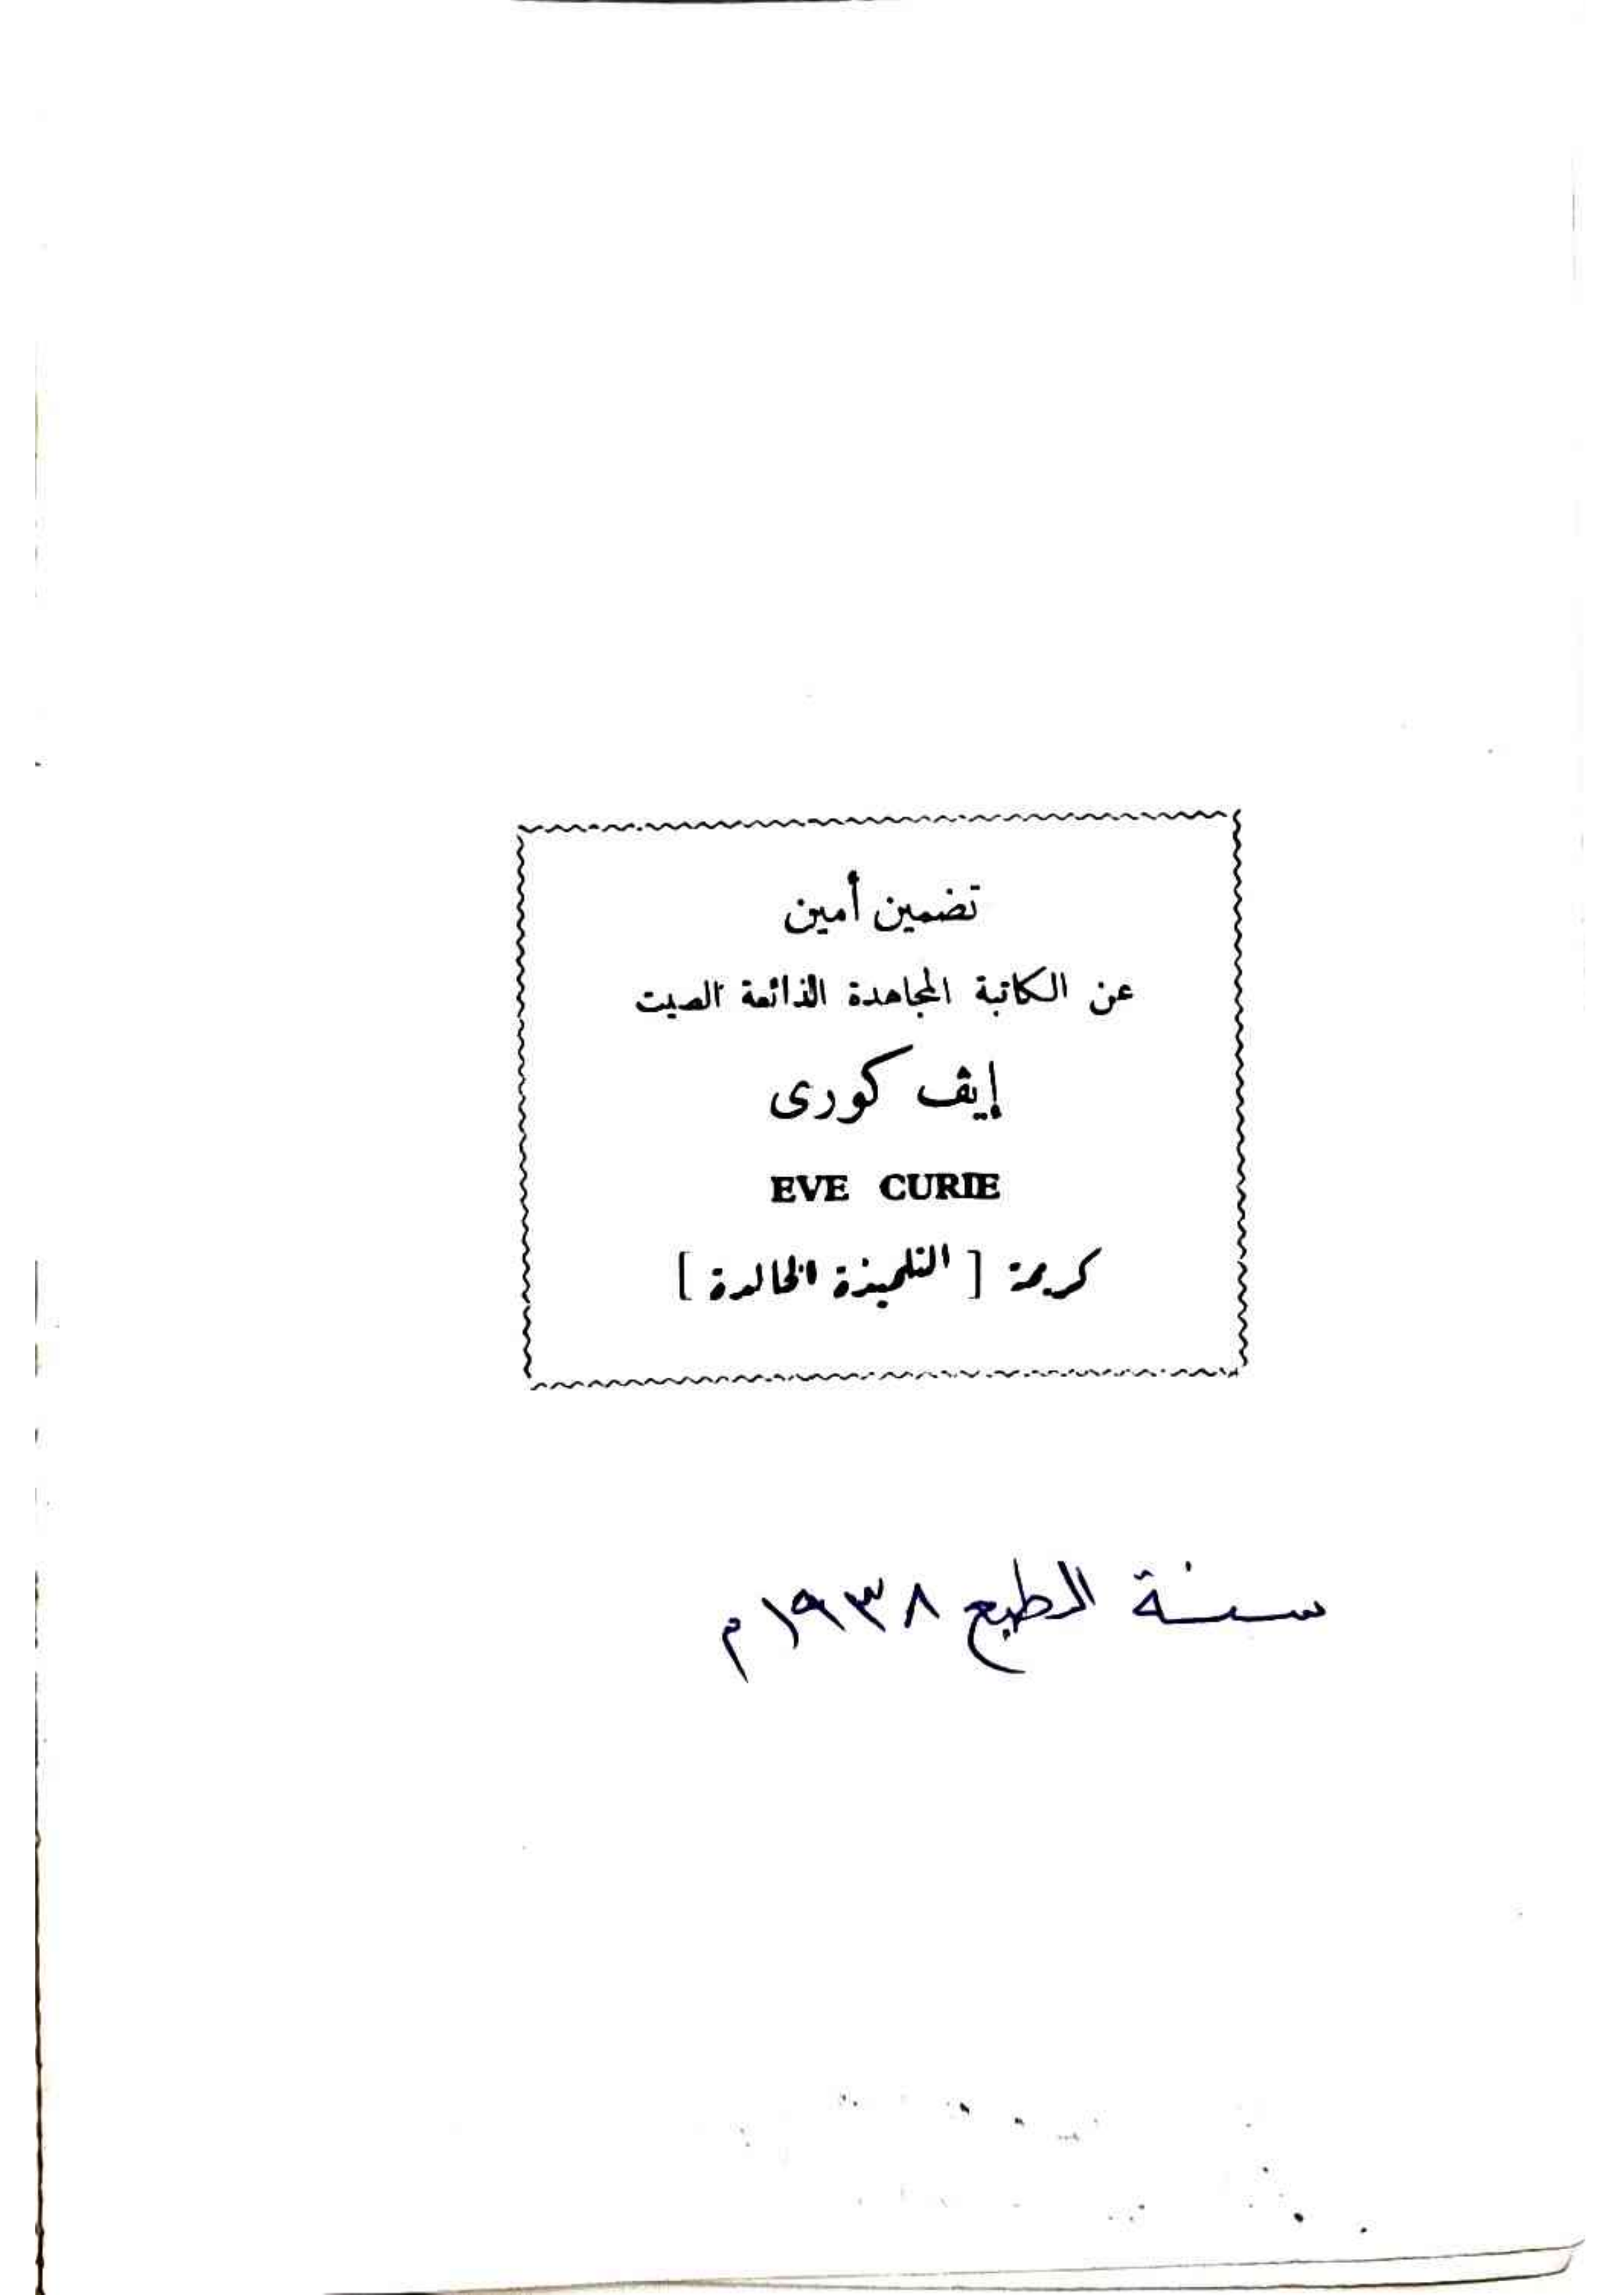 تضمين أمين
عن الكاتبة المجاهدة الذائعة الصيت
إيڤ كورى
EVE CURIE
كريمة [ التلميذة الخالدة ]
سنة الطبع ١٩٣٨ م